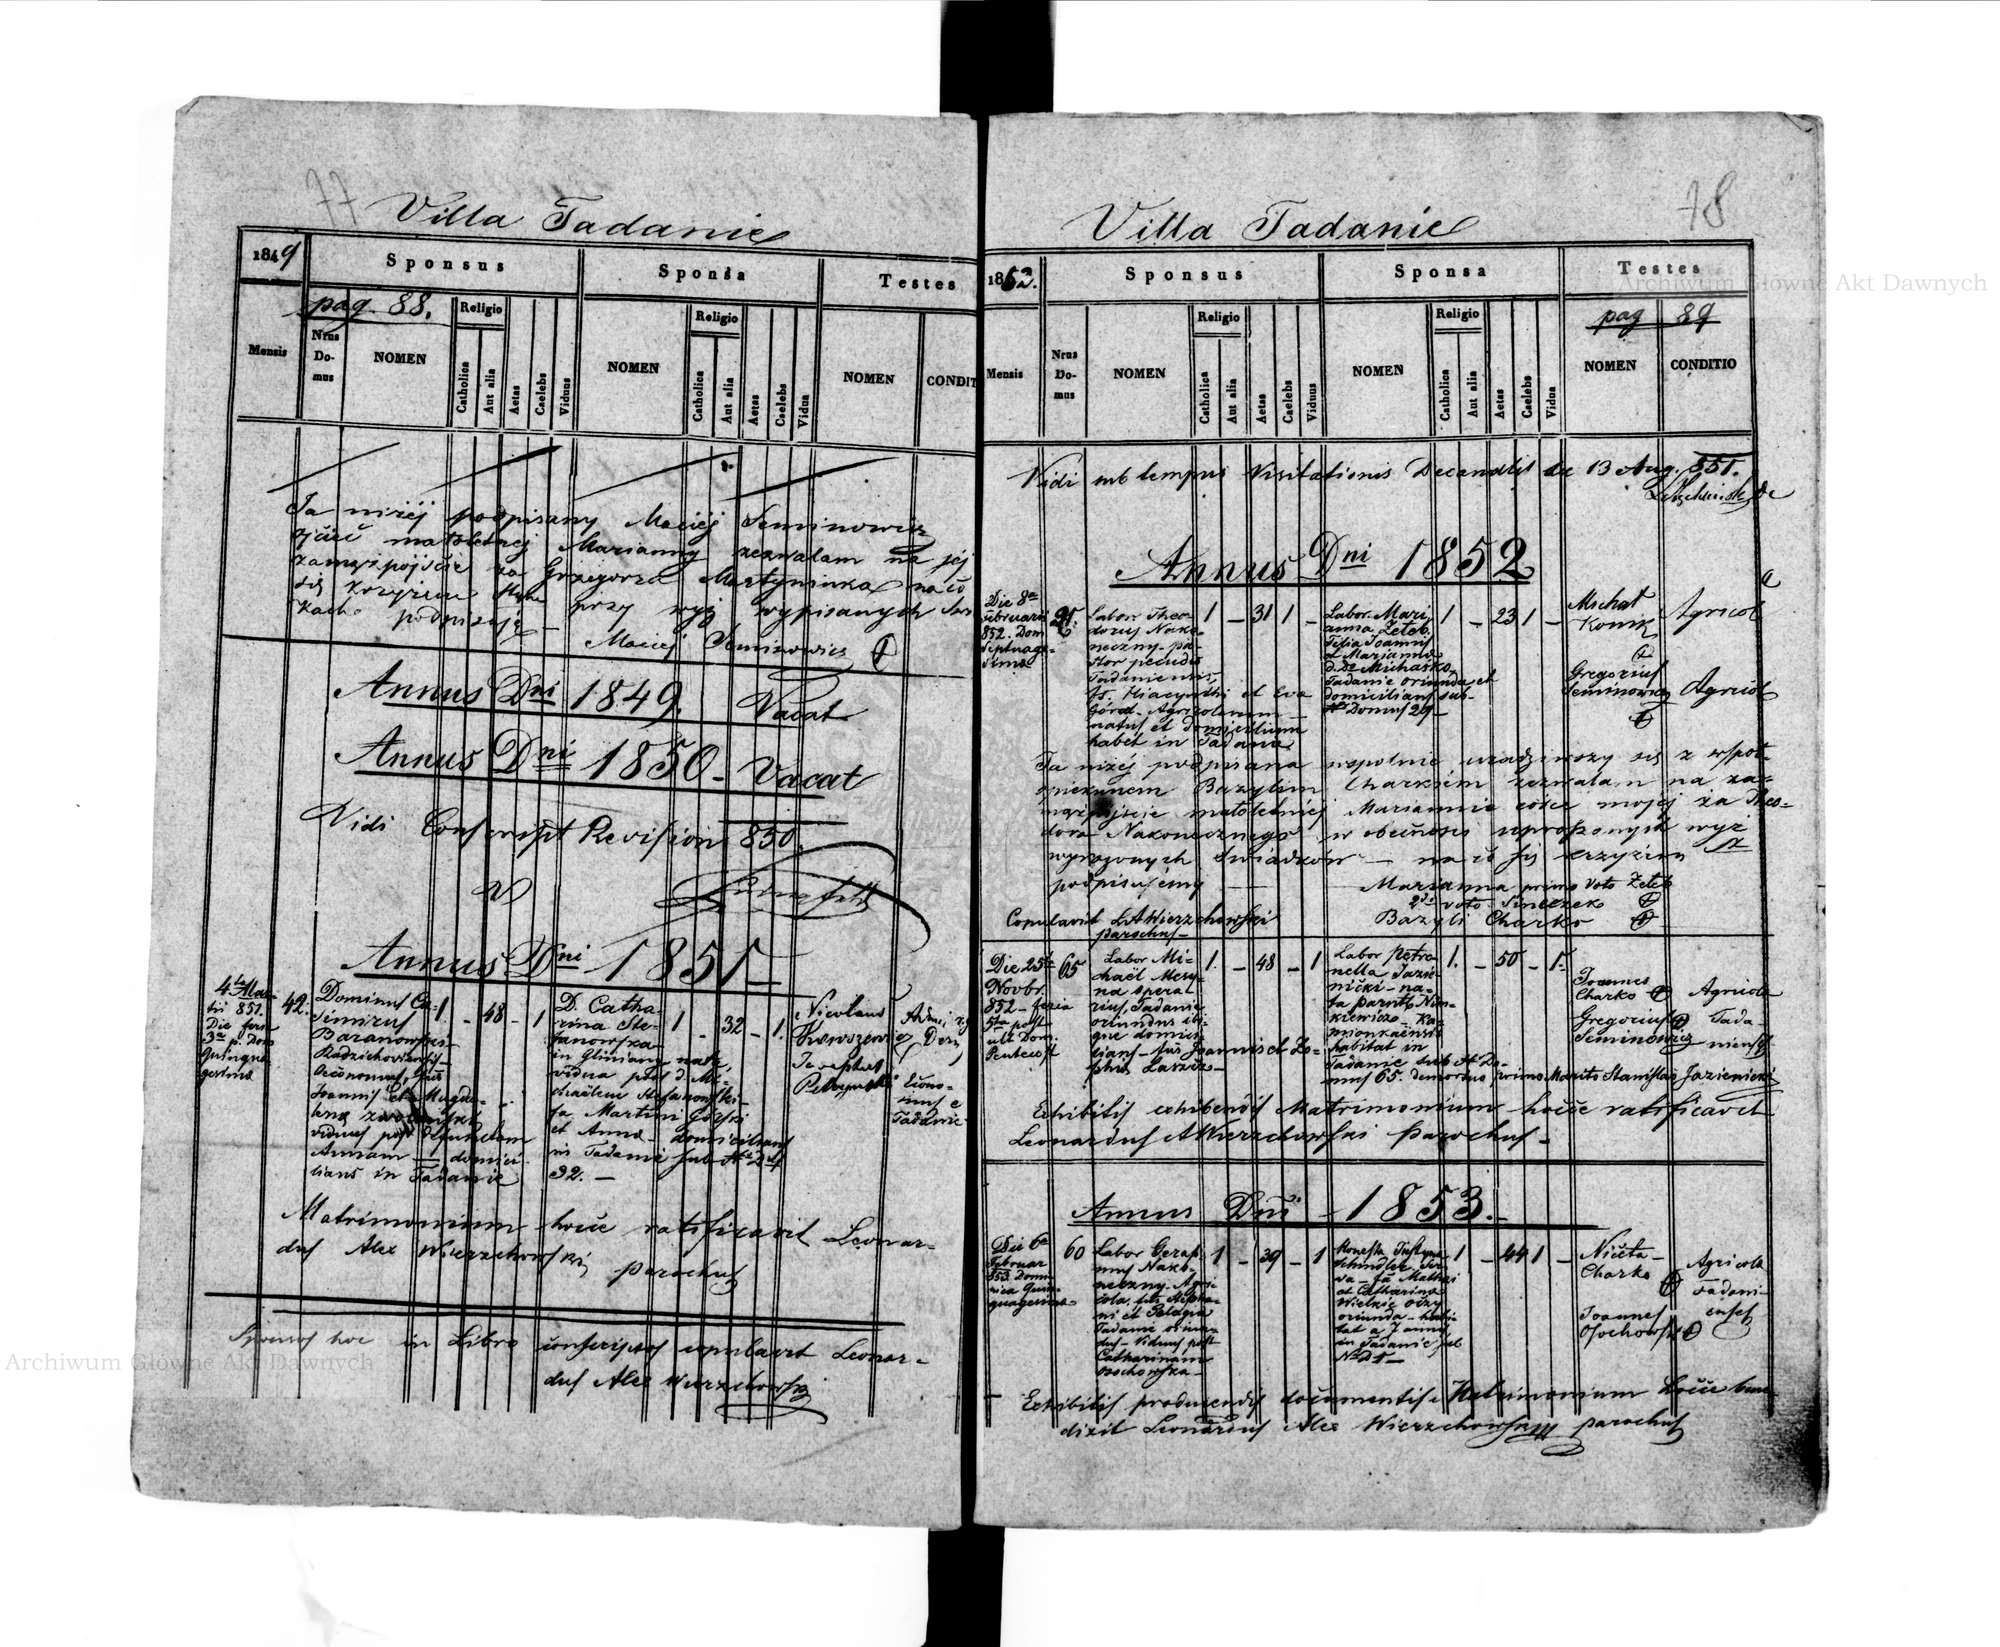 77
Villa Tadanie
1849
Sponsus
Sponsa
Testes
pag. 88.
Religio
Religio
Mensis
Nrus Do- mus
NOMEN
Catholica
Aut alia
Aetas
Caelebs
Viduus
NOMEN
Catholica
Aut alia
Aetas
Caelebs
Vidua
NOMEN
CONDIT
Ja niżéj podpisany Maciéj Seminowicz
ojciec małoletnéj Marianny zezwalam na jéj
zamęzpójście za Grzegorza Martyniuka na co
się krzyżem przy wyż wypisanych
podpisuję
Maciéj Seminowicz
Annus Dni 1849. Vacat
Annus Dni 1850 - Vacat
Vidi Conscript Revision 850.
Annus Dni 1851
4ta Mar-
tii 851.
Die
3a p. Dom
Quinqua
gesima
42.
Dominus Ca-
simirus
Baranowski
Radziechoviensis
Oeconomus, fius
Joannis et Magda-
lena
viduus post defunctam
Annam domici-
lians in Tadanie
1 - 48 - 1
D. Catha-
rina Ste-
fanowska
in Gliniany nata,
vidua post d. Mi-
chaelem Stefanowski
fa Martini Górski
et Anna - domicilians
in Tadanie sub No
32. -
1 - 32 - 1.
Nicolaus
Josephus
Econo-
mus e
Tadanie
Matrimonium hocce ratificavit Leonar-
dus Alex Wierzchowski
parochus
Sponsos hoc in Libro conscriptos copulavit Leonar-
dus Alex Wierzchowski
78
Villa Tadanie
1852.
Sponsus
Sponsa
Testes
Religio
Religio
pag 89
Mensis
Nrus Do- mus
NOMEN
Catholica
Aut alia
Aetas
Caelebs
Viduus
NOMEN
Catholica
Aut alia
Aetas
Caelebs
Vidua
NOMEN
CONDITIO
Vidi sub tempus Visitationis Decanalis die 13 Aug. 851.
Annus Dni 1852
Die 8a
Februarii
852. Dom
Septuage-
sima
Labor. Theo-
dorus Nako-
neczny pa-
stor pecudis
Tadaniensis,
fs. Hiacynthi et Eva
Góral - Agricolarum
natus et domicilium
habet in Tadanie
1 - 31 1 -
Labor. Mari-
anna Zeleb
Filia Joannis
et Marianna
d. De Michasko
Tadanie oriunda et
domicilians sub
No Domus 29 -
1 - 23 1 -
Michał
Konik
Agricola
Gregorius
Seminowicz
Agricola
Ja niżéj podpisana wspólnie uradziwszy się z współ-
opiekunem Bazylim Charkiem zezwalam na za-
mężpójście małoletniéj Mariannie córce mojéj za Theo-
dora Nakonecznego w obecności uproszonych wyż
wyrażonych świadków - na co się krzyżem
podpisujemy
Marianna primo voto Zeleb
2do voto Sinczek
Bazyli Charko
Copulavit LAWierzchowski
parochus
Die 25ta
Novbr.
852 - feria
5ta post
ult Dom.
Pentecost
65
Labor Mi-
chaël
Tadanie
oriundus ibi-
que domici-
lians - fius Joannis et Zo-
phia
1. - 48 - 1
Labor Petro-
nella Jazie-
nicki - na-
ta parntb Nin-
kiewicz - Ka-
mionkaensis
habitat in
Tadanie sub No Do-
mus 65. demortuo primo Marito Stanislao Jazienicki
1. - 50 - 1.
Joannes
Charko
Agricola
Gregorius
Seminowicz
Tada-
niensis
Exhibitis exhibendis Matrimonium hocce ratificavit
Leonardus AWierzchowski parochus -
Annus Dni - 1853. -
Die 6a
Februar
853. Domi-
nica Quin-
quagesima
60
Labor Gerasi-
mus Nako-
neczny Agri-
cola, fius Stepha-
ni et Pelagia
Tadanie oriun-
dus - Viduus post
Catharinam
Osochowska -
1 - 39 - 1
Honesta Justyna
Schindler Ser-
va - fa Mathei
et Catharina
oriunda - habi-
tat a 7 annis
in Tadanie sub
No 21 -
1 - 44 1 -
Nicéta
Charko
Agricola
Joannes
Osochowski
Tadani-
enses
Exhibitis producendis documentis Matrimonium hocce bene-
dixit Leonardus Alex Wierzchowski parochus
Archiwum Główne Akt Dawnych
Archiwum Główne Akt Dawnych